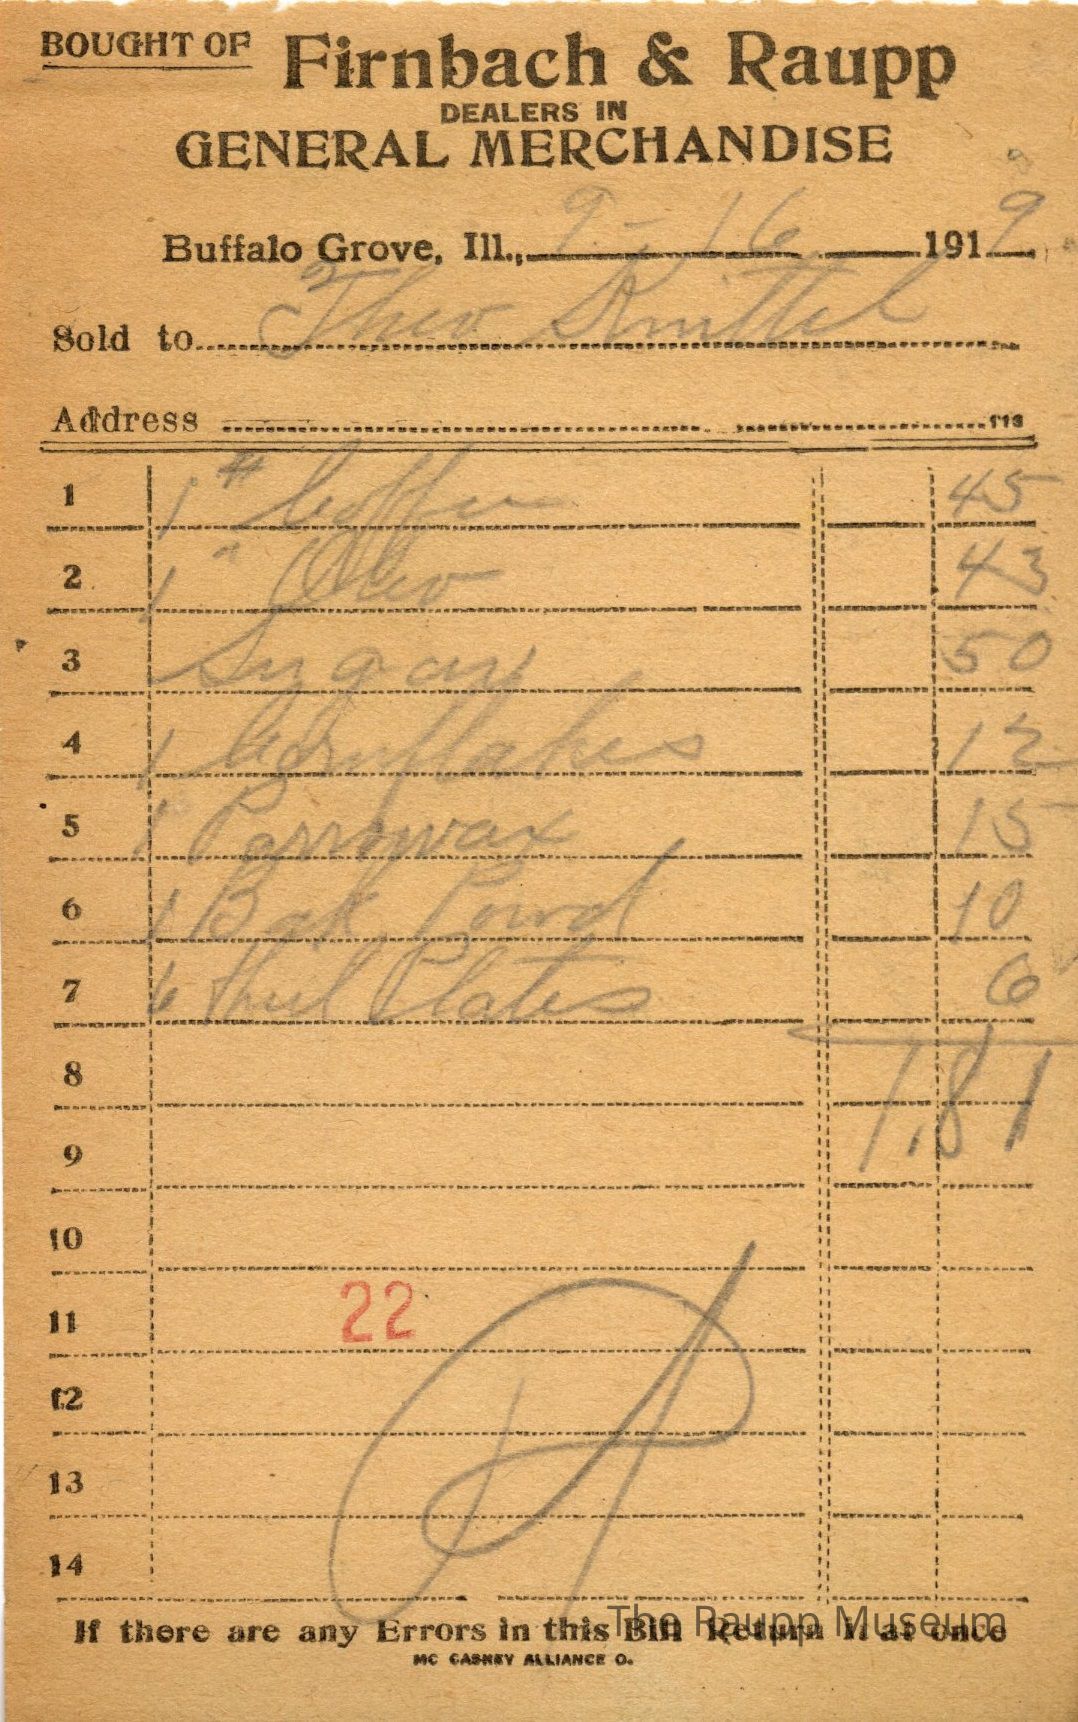 BOUGHT OF Firnbach & Raupp
DEALERS IN
GENERAL MERCHANDISE
Buffalo Grove, Ill., 9-16 1919
Sold to Theo Knittel
Address 113
1 1 # Coffee 45
2 1 " Oleo 43
3 Sugar 50
4 1 Cornflakes 12
5 1 Parrowax 15
6 1 Bak Powd 10
7 6 Plates 6
8 1.81
9
10
11 22
12
13
14
If there are any Errors in this Bill Return it at once
MC CASKEY ALLIANCE O.
The Raupp Museum